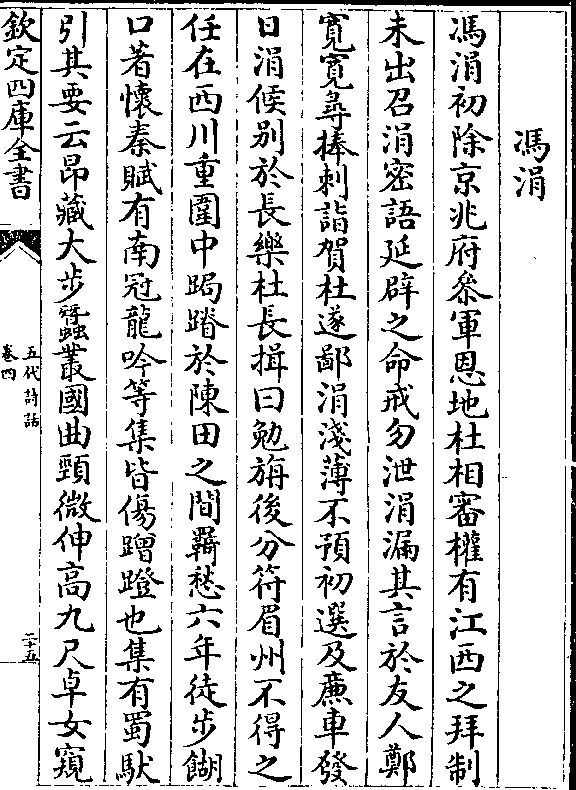 馮涓
馮涓初除京兆府叅軍恩地杜相審權有江西之拜制
未出召涓密語延辟之命戒勿泄涓漏其言於友人鄭
賓賓尋捧刺詣賀杜遂鄙涓淺薄不預初選及廉車發
日涓候别於長樂杜長揖曰勉旃後分符眉州不得之
任在西川重圍中跼蹐於陳田之間羇愁六年徒步餬
口著懷秦賦有南冠龍吟等集皆傷蹭蹬也集有蜀馱
引其要云昂藏大步蠶叢國曲頸微伸高九尺卓女窺
欽定四庫全書
五代詩話
卷四
二十五